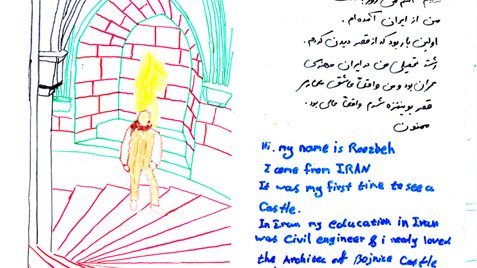 من از ایران آمده ام .
اولین بار بود که از قصر دیدن کردم .
رشته تحصیلی من در ایران مهندسی
عمران بود و من واقعا عاشق معماری
قصر بوینیتزه شدم واقعا عالی بود .
ممنون
Hi. my name is Roozbeh
I come from IRAN
It was my first time to see a
Castle.
In Iran my education in Iran
was Civil engineer & i realy loved
the Architec of Bojnice Castle